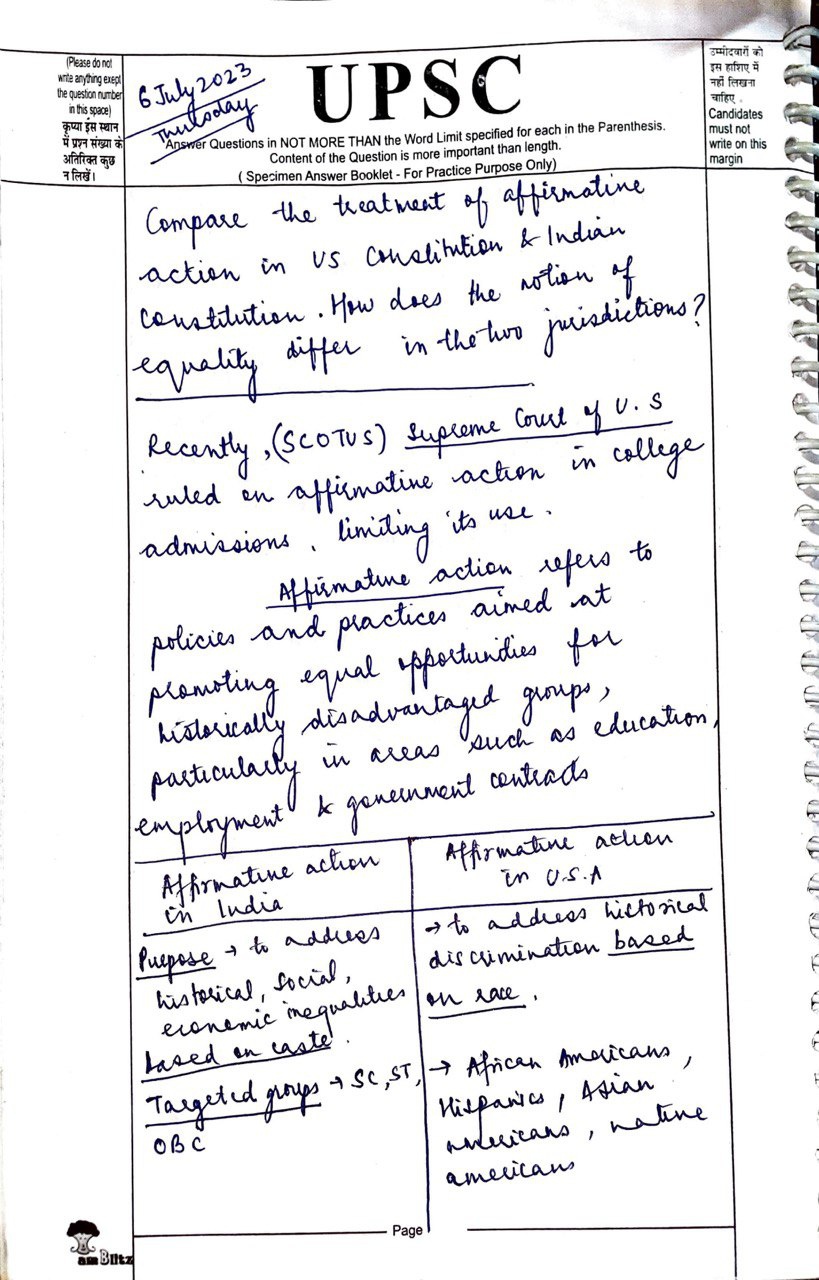 (Please do not
write anything exept
the question number
in this space)
कृप्या इस स्थान
में प्रश्न संख्या के
अतिरिक्त कुछ
न लिखें।
6 July 2023
Thursday
UPSC
Answer Questions in NOT MORE THAN the Word Limit specified for each in the Parenthesis.
Content of the Question is more important than length.
( Specimen Answer Booklet - For Practice Purpose Only)
उम्मीदवारों को
इस हाशिए में
नहीं लिखना
चाहिए .
Candidates
must not
write on this
margin
Compare the treatment of affirmative
action in US Constitution & Indian
Constitution. How does the notion of
equality differ in the two jurisdictions?
Recently, (SCOTUS) Supreme Court of U.S
ruled on affirmative action in college
admissions, limiting its use.
Affirmative action refers to
policies and practices aimed at
promoting equal opportunities for
historically disadvantaged groups,
particularly in areas such as education,
employment & government contracts
Affirmative action
in India
Affirmative action
in U.S.A
Purpose → to address
historical, social,
economic inequalities
based on caste.
→ to address historical
discrimination based
on race.
Targeted groups → SC, ST,
OBC
→ African Americans,
Hispanics, Asian
americans, native
americans
Page
am Blitz